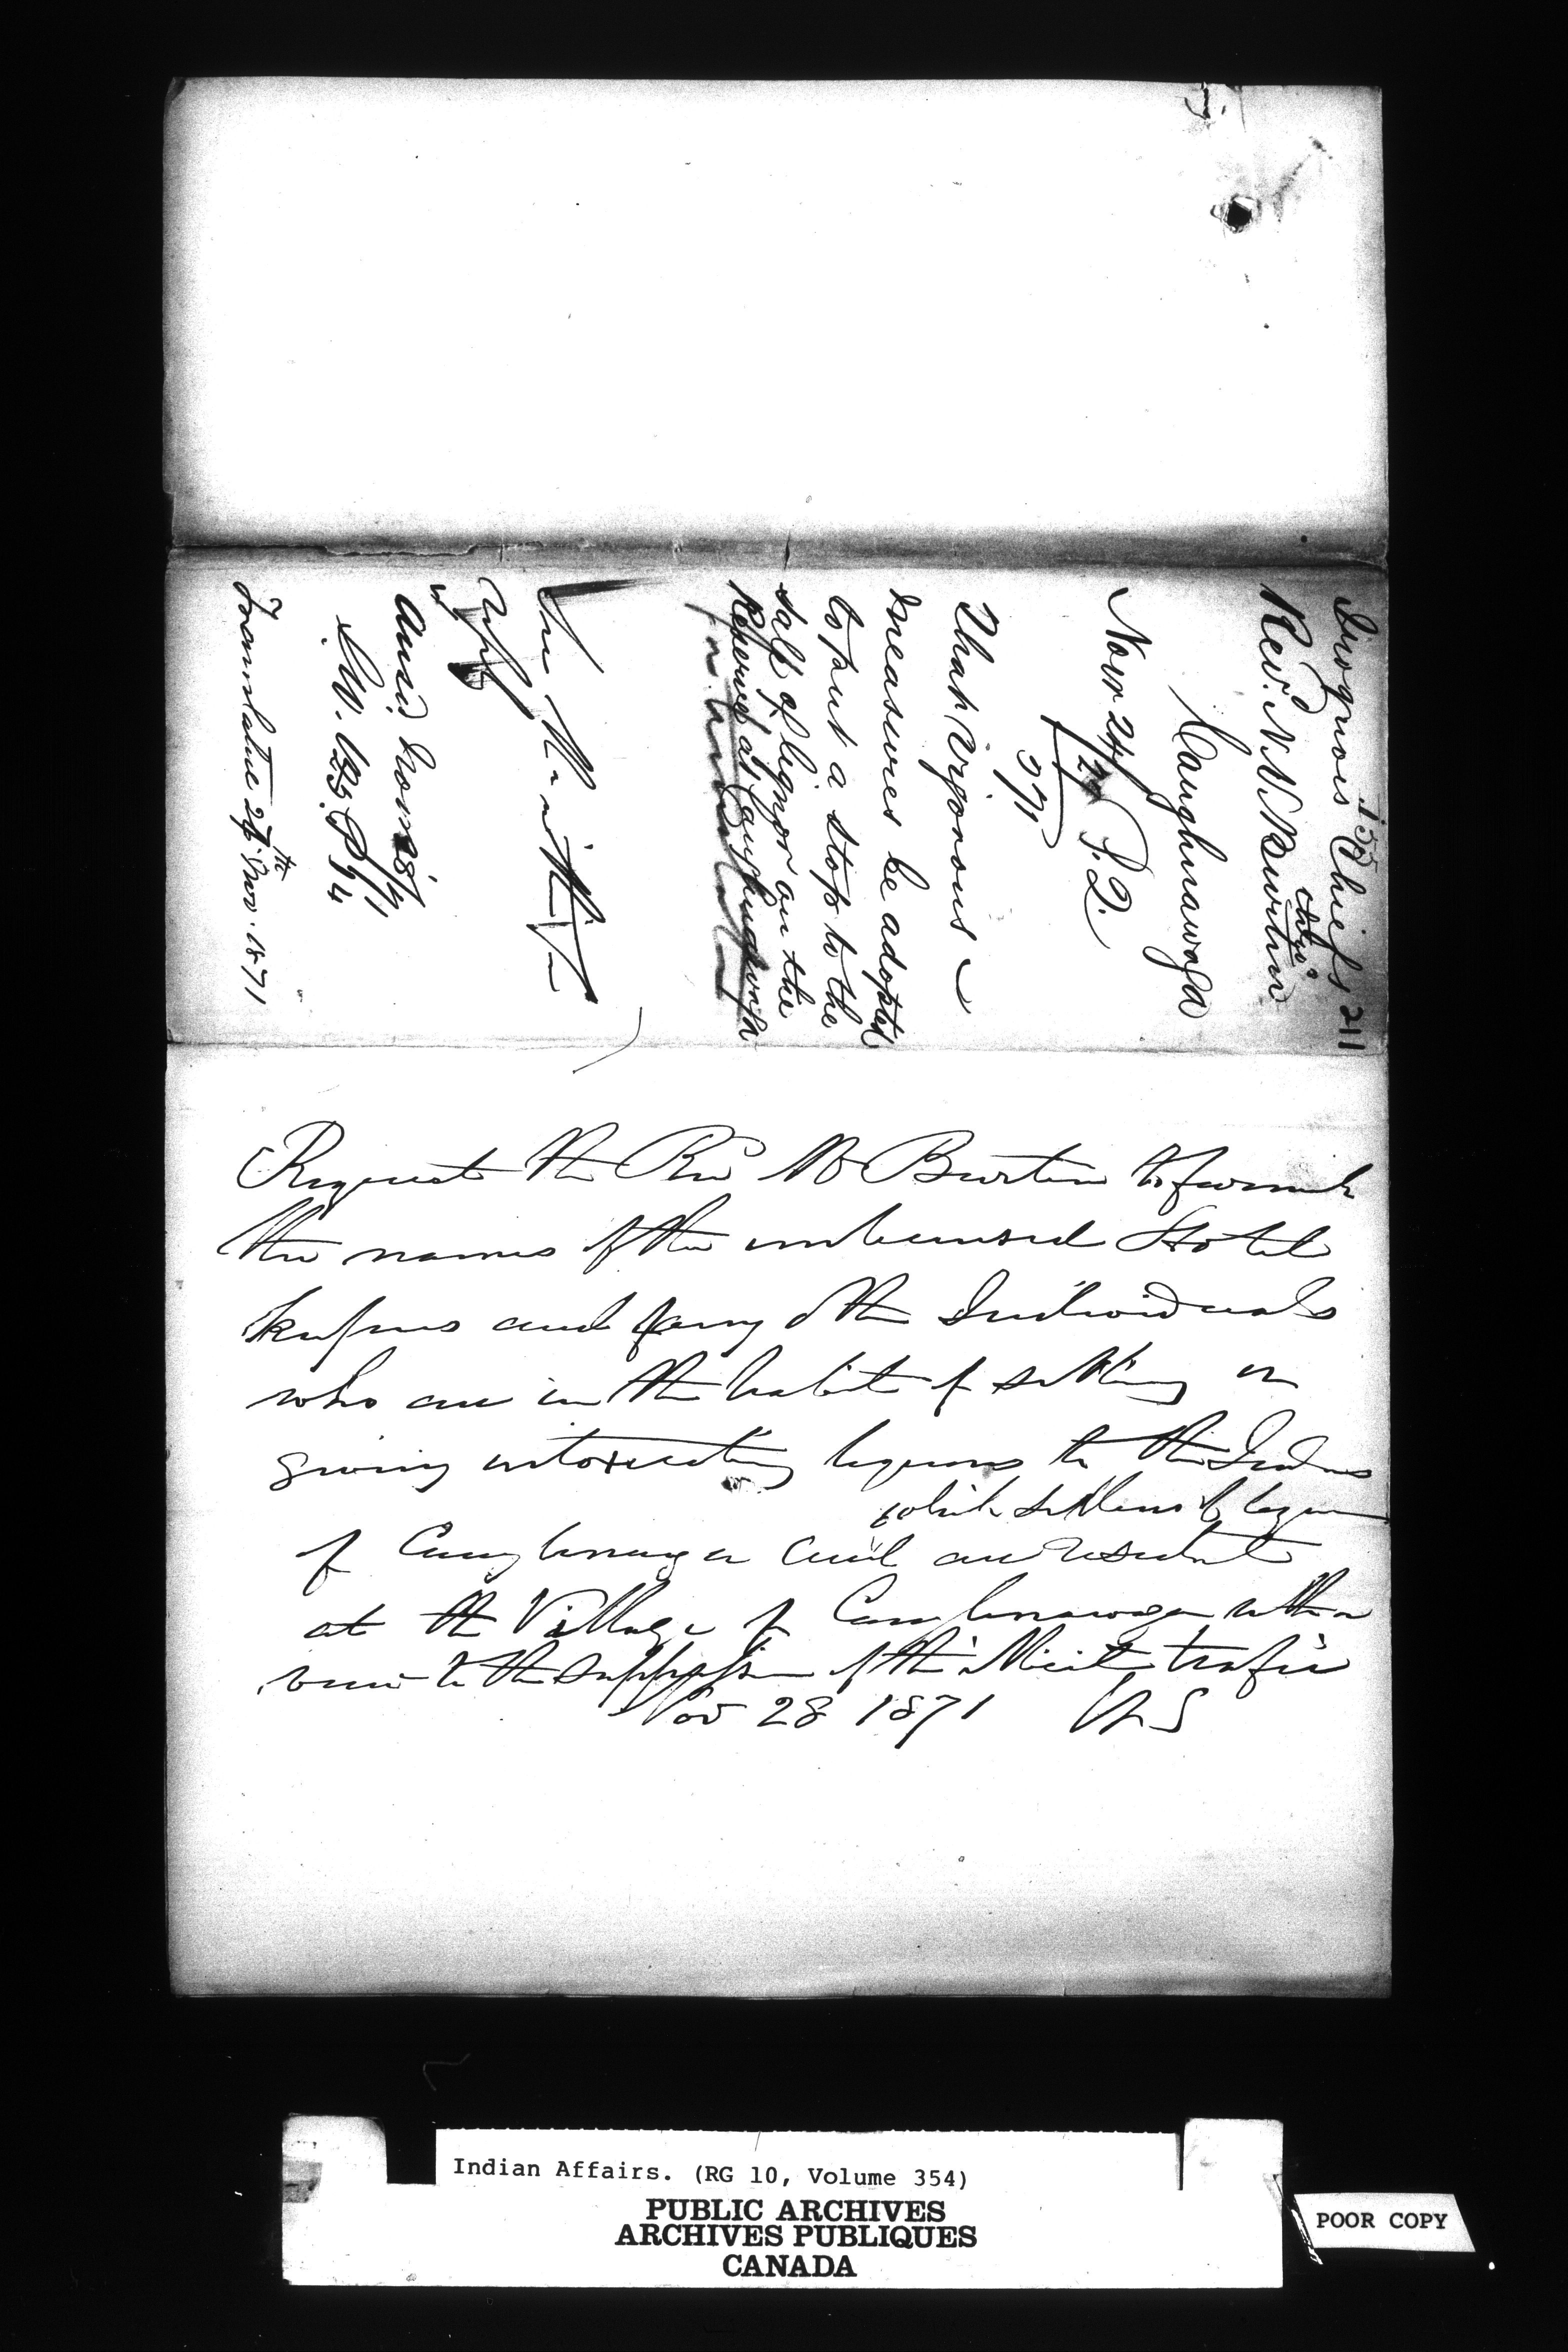 211
Iroquois Chiefs
Rev. N. V. Burtin
Caughnawaga
Novr 24/29 P.Q.
371
That vigorous
measures be adopted
to put a stop to the
sale of liquor on the
Reserve at Caughnawaga
within
Ansd Novr 28/71
Translation 27th Nov. 1871
Request the Rev Mr Burtin to furnish
the names of the unlicensed Hotel
keepers and of any other Individuals
who are in the habit of selling or
giving intoxicating liquors to the Indians
which sellers of liquor
of Caughnawaga and are resident
at the Village of Caughnawaga with a
view to the suppression of the illicit traffic
Nov 28 1871 HL
Indian Affairs. (RG 10, Volume 354)
PUBLIC ARCHIVES
ARCHIVES PUBLIQUES
CANADA
POOR COPY